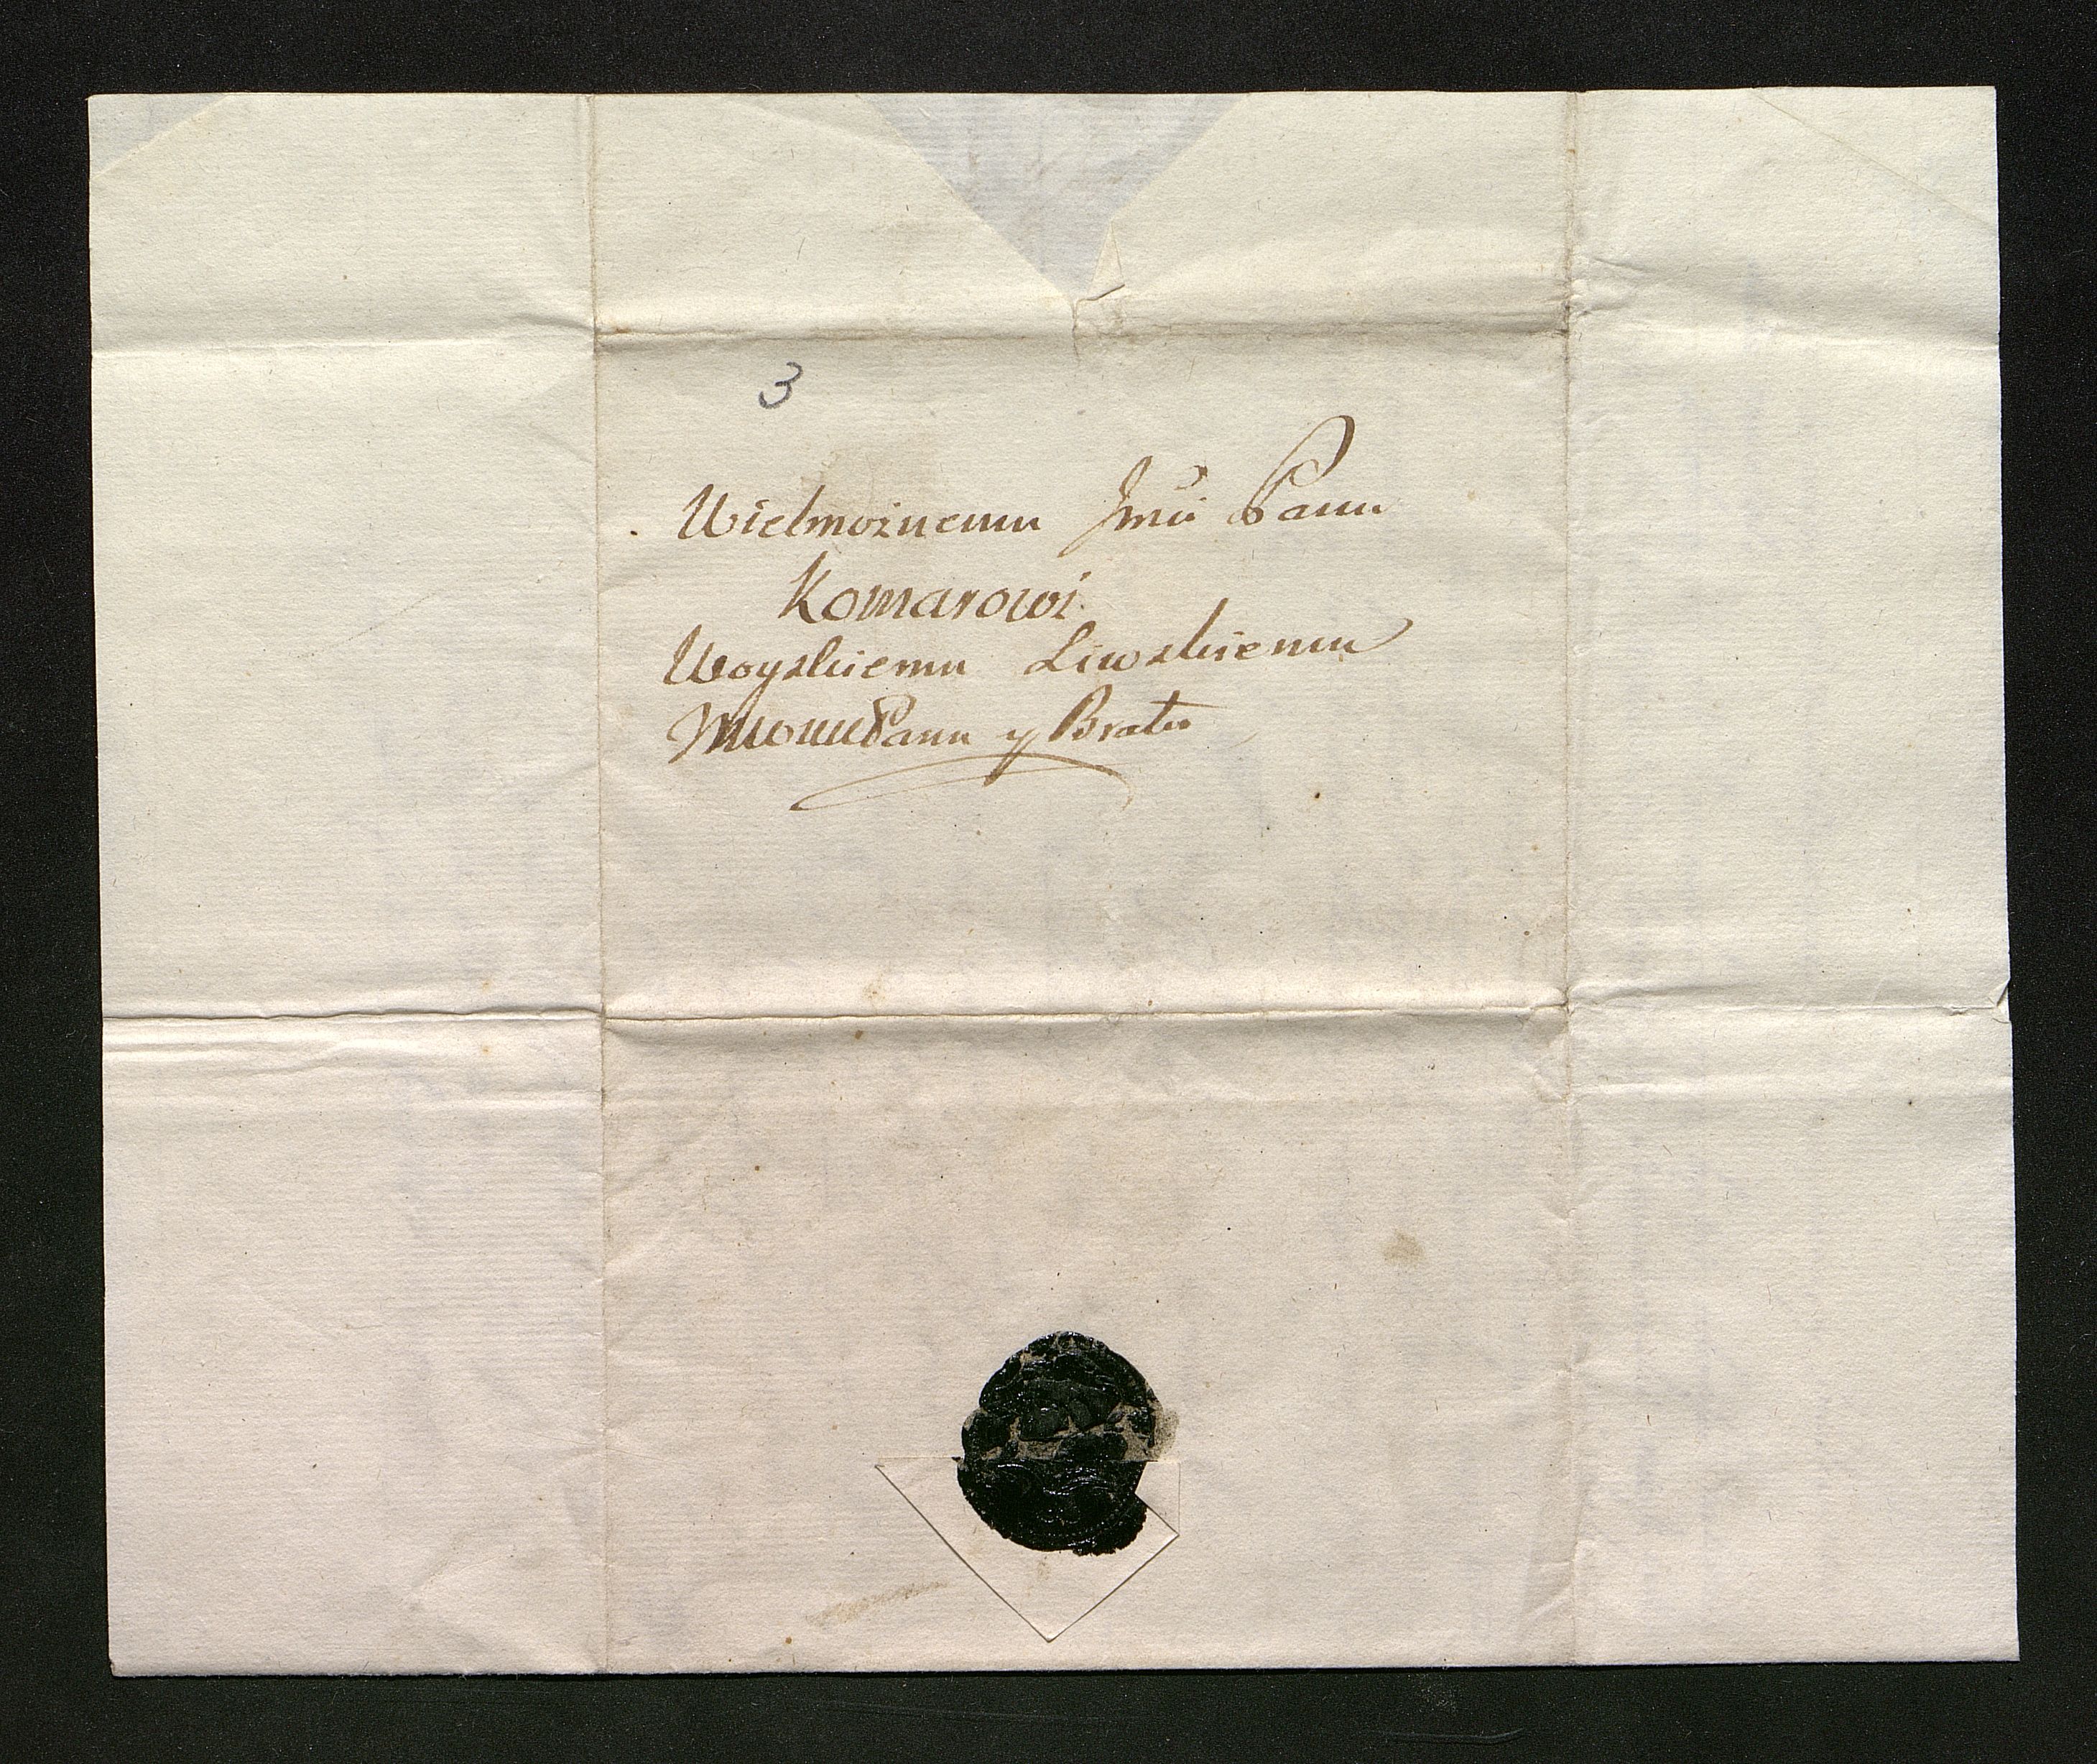 3
Wielmoznemu Jmci Panu
Komarowi
Woyskiemu Liwskiemu
Mmomu Panu y Bratu